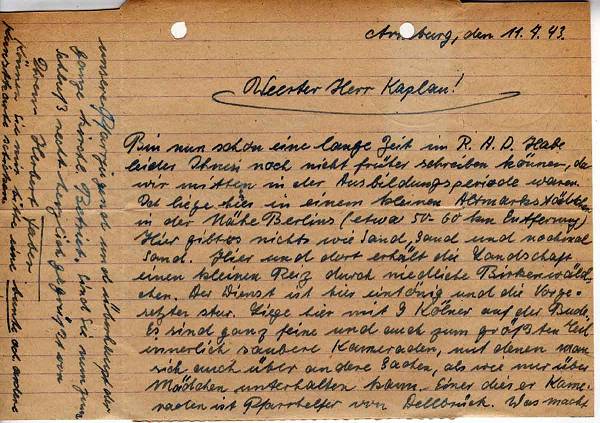 Arneburg, den 11.7.43.
Werter Herr Kaplan!
Bin nun schon eine lange Zeit im R.A.D. Habe
leider Ihnen noch nicht früher schreiben können, da
wir mitten in der Ausbildungsperiode waren.
liege hier in einem kleinen Altmarkstädtchen
in der Nähe Berlins (etwa 50-60 km Entfernung)
Hier gibt es nichts wie Sand, Sand und nochmal
Sand. Hier und dort erhält die Landschaft
einen kleinen Reiz durch niedliche Birkenwäld-
chen. Der Dienst ist hier eintönig und die Vorge-
setzten stur. Liege hier mit 9 Kölner auf der Bude.
Es sind ganz feine und auch zum größten Teil
innerlich saubere Kameraden, mit denen man
sich auch über andere Sachen, als wie nur über
Mädchen unterhalten kann. Einer dieser Kame-
raden ist Pfarrhelfer von Dellbrück. Was macht
unsere Pfarrjugend und überhaupt der
ganze kirchl. Betrieb. Sind Sie nun zum
Schluß recht herzlich gegrüßt von
Ihrem Herbert
Können Sie mir bitte eine
schicken